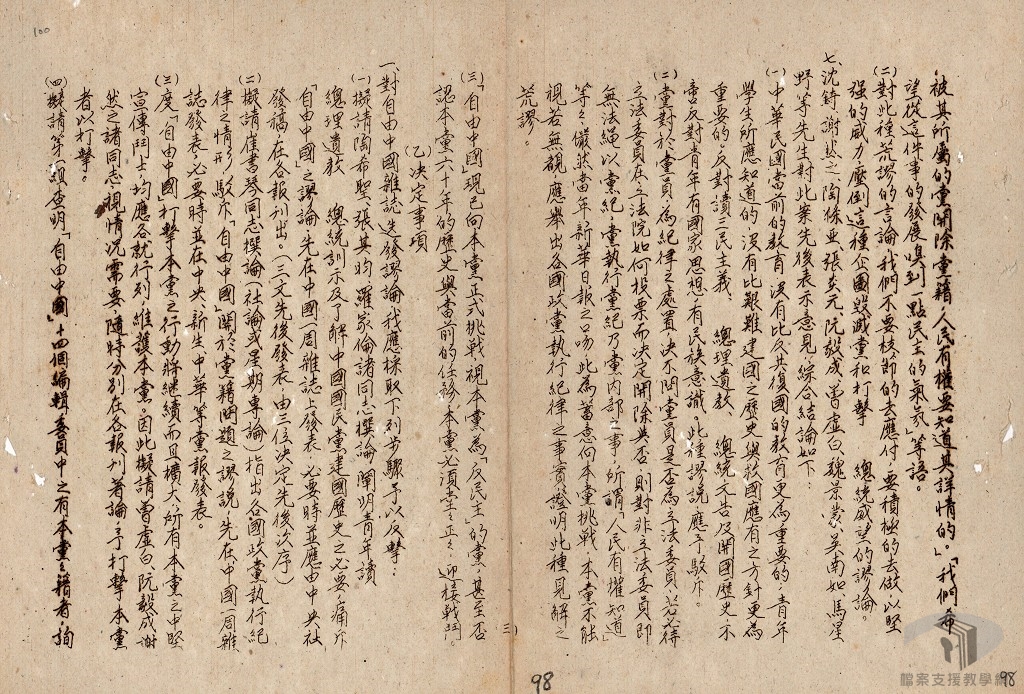 被其所屬的黨開除黨籍,人民有權要知道其詳情的。」「我們希
望從這件事的發展嗅到一點民主的氣氛」等語。
(二)對此種荒謬的言論,我們不要枝節的去應付,要積極的去做,以堅
強的威力壓倒這種企圖毀滅黨和打擊 總統威望的謬論。
七、沈錡、謝然之、陶希聖、張其昀、阮毅成、曾虛白、魏景蒙、吳南如、馬星
野等先生對此案先後表示意見,綜合結論如下:
(一)中華民國當前的教育,沒有比反共復國的教育更為重要的,青年
學生所應知道的,沒有比艱難建國之歷史與救國應有之方針更為
重要的,反對讀三民主義、 總理遺教、 總統文告及開國歷史,不
啻反對青年有國家思想,有民族意識。此種謬說,應予駁斥。
(二)黨對於黨員,為紀律之處置,決不問黨員是否為立法委員,若必待
立法委員在立法院如何投票而決定開除與否,則對非立法委員即
無法繩以黨紀,黨執行黨紀乃黨內部之事,所謂「人民有權知道」
等,儼然當年新華日報之口吻,此為蓄意向本黨挑戰,本黨不能
視若無覩,應舉出各國政黨執行紀律之事實,證明此種見解之
荒謬。
三
98
98
(三)「自由中國」現已向本黨正式挑戰,視本黨為「反民主」的黨,甚至否
認本黨六十年的歷史與當前的任務,本黨必須堂堂正正,迎接戰鬥。
(乙)決定事項
一、對自由中國雜誌先後發謬論,我應採取下列步驟,予以反擊:
(一)擬請陶希聖、張其昀、羅家倫諸同志撰論,闡明青年讀
總理遺教 總統訓示及了解中國國民黨建國歷史之必要,痛斥
「自由中國」之謬論,先在中國一周雜誌上發表,必要時並應由中央社
發稿,在各報刊出。(三文先後發表,由三位決定先後次序)
(二)擬請崔書琴同志撰論(社論或星期專論)指出各國政黨執行紀
律之情形,駁斥「自由中國」關於黨籍問題之謬說,先在中國一周雜
誌發表,必要時並在中央、新生、中華等黨報發表。
(三)度「自由中國」打擊本黨之行動將繼續而且擴大,所有本黨之中堅
宣傳鬥士,均應各就行列,維護本黨,因此擬請曾虛白、阮毅成、謝
然之諸同志,視情況需要,隨時分別在各報刊著論,予打擊本黨
者以打擊。
(四)擬請第一組查明「自由中國」十四個編輯委員中之有本黨黨籍者,詢
100
檔案支援教學網